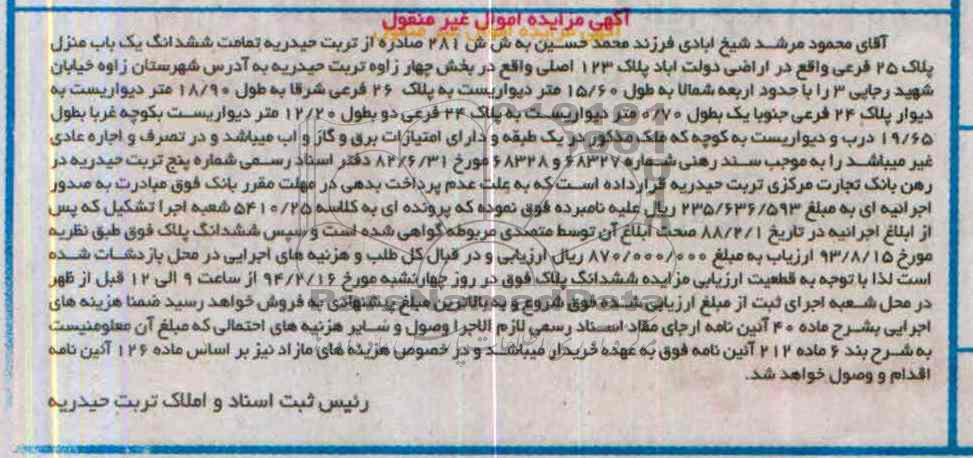 آگهی مزایده اموال غیر منقول
آقای محمود مرشد شیخ ابادی فرزند محمد حسین به ش ش ۲۸۱ صادره از تربت حیدریه تمامت ششدانگ یک باب منزل
پلاک ۲۵ فرعی واقع در اراضی دولت اباد پلاک ۱۲۳ اصلی واقع در بخش چهار زاوه تربت حیدریه به آدرس شهرستان زاوه خیابان
شهید رجایی ۳ را با حدود اربعه شمالا به طول ۱۵/۶۰ متر دیواریست به پلاک ۲۶ فرعی شرقا به طول ۱۸/۹۰ متر دیواریست به
دیوار پلاک ۲۴ فرعی جنوبا یک بطول ۰/۷۰ متر دیواریست به پلاک ۲۴ فرعی دو بطول ۱۲/۲۰ متر دیواریست بکوچه غربا بطول
۱۹/۶۵ درب و دیواریست به کوچه که ملک مذکور در یک طبقه و دارای امتیازات برق و گاز و اب میباشد و در تصرف و اجاره عادی
غیر میباشد را به موجب سند رهنی شماره ۶۸۳۲۷ و ۶۸۳۲۸ مورخ ۸۲/۶/۳۱ دفتر اسناد رسمی شماره پنج تربت حیدریه در
رهن بانک تجارت مرکزی تربت حیدریه قرارداده است که به علت عدم پرداخت بدهی در مهلت مقرر بانک فوق مبادرت به صدور
اجرائیه ای به مبلغ ۲۳۵/۶۳۶/۵۹۳ ریال علیه نامبرده فوق نموده که پرونده ای به کلاسه ۵۴۱۰/۲۵ شعبه اجرا تشکیل که پس
از ابلاغ اجرائیه در تاریخ ۸۸/۲/۱ صحت ابلاغ آن توسط متصدی مربوطه گواهی شده است و سپس ششدانگ پلاک فوق طبق نظریه
مورخ ۹۳/۸/۱۵ ارزیاب به مبلغ ۸۷۰/۰۰۰/۰۰۰ ریال ارزیابی و در قبال کل طلب و هزینه های اجرایی در محل بازدشات شده
است لذا با توجه به قطعیت ارزیابی مزایده ششدانگ پلاک فوق در روز چهارشنبه مورخ ۹۴/۲/۱۶ از ساعت ۹ الی ۱۲ قبل از ظهر
در محل شعبه اجرای ثبت از مبلغ ارزیابی شده فوق شروع و به بالاترین مبلغ پیشنهادی به فروش خواهد رسید ضمنا هزینه های
اجرایی بشرح ماده ۴۰ آئین نامه ارجای مفاد اسناد رسمی لازم الاجرا وصول و سایر هزنیه های احتمالی که مبلغ آن معلومنیست
به شرح بند ۶ ماده ۲۱۲ آئین نامه فوق به عهده خریدار میباشد و در خصوص هزینه های مازاد نیز بر اساس ماده ۱۲۶ آئین نامه
اقدام و وصول خواهد شد.
رئیس ثبت اسناد و املاک تربت حیدریه